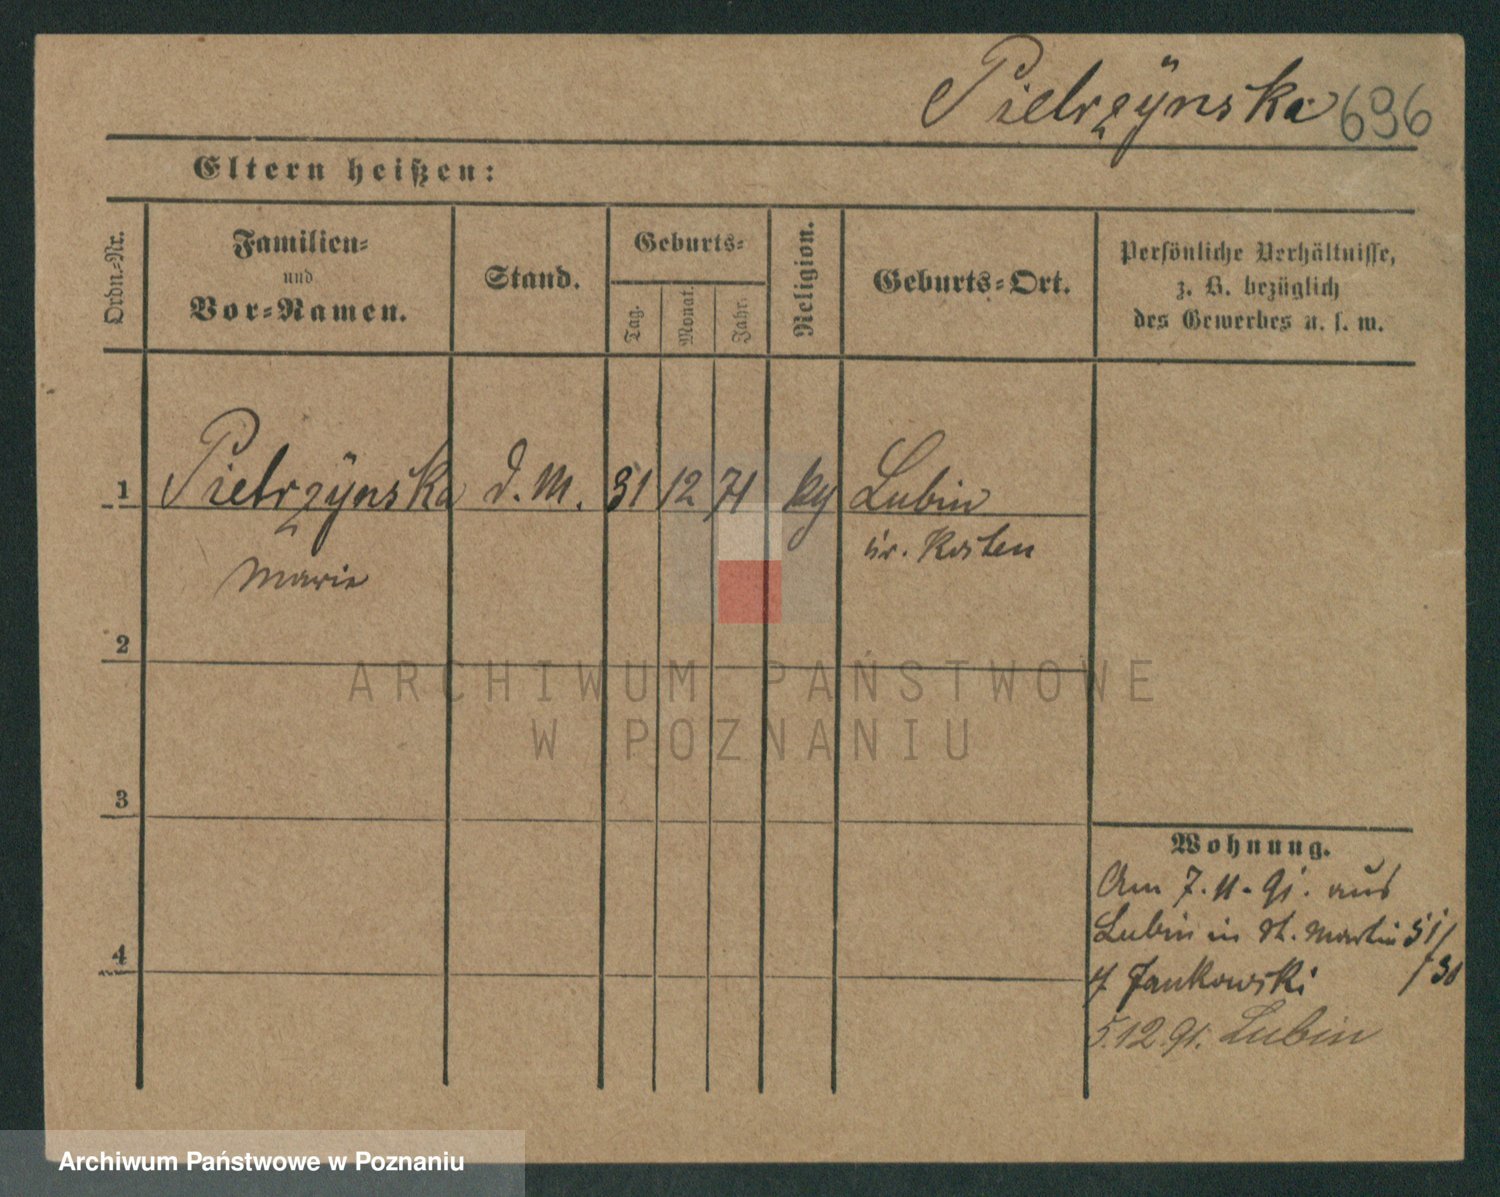 Pietrzÿnska 696
Eltern heißen:
Ordn.-Nr.
Familien-
und
Vor-Namen.
Stand.
Geburts-
Tag.
Monat.
Jahr.
Religion.
Geburts-Ort.
Persönliche Verhältnisse,
z. B. bezüglich
des Gewerbes u. s. w.
1 Pietrzÿnska d. M. 31 12 71 Lubin
Marie Kr. Kosten
2
3
4
Wohnung.
Am 7. 11. 91. aus
Lubin in St. Martin 51/
Jankowski /30
5.12.91. Lubin
ARCHIWUM PAŃSTWOWE
W POZNANIU
Archiwum Państwowe w Poznaniu